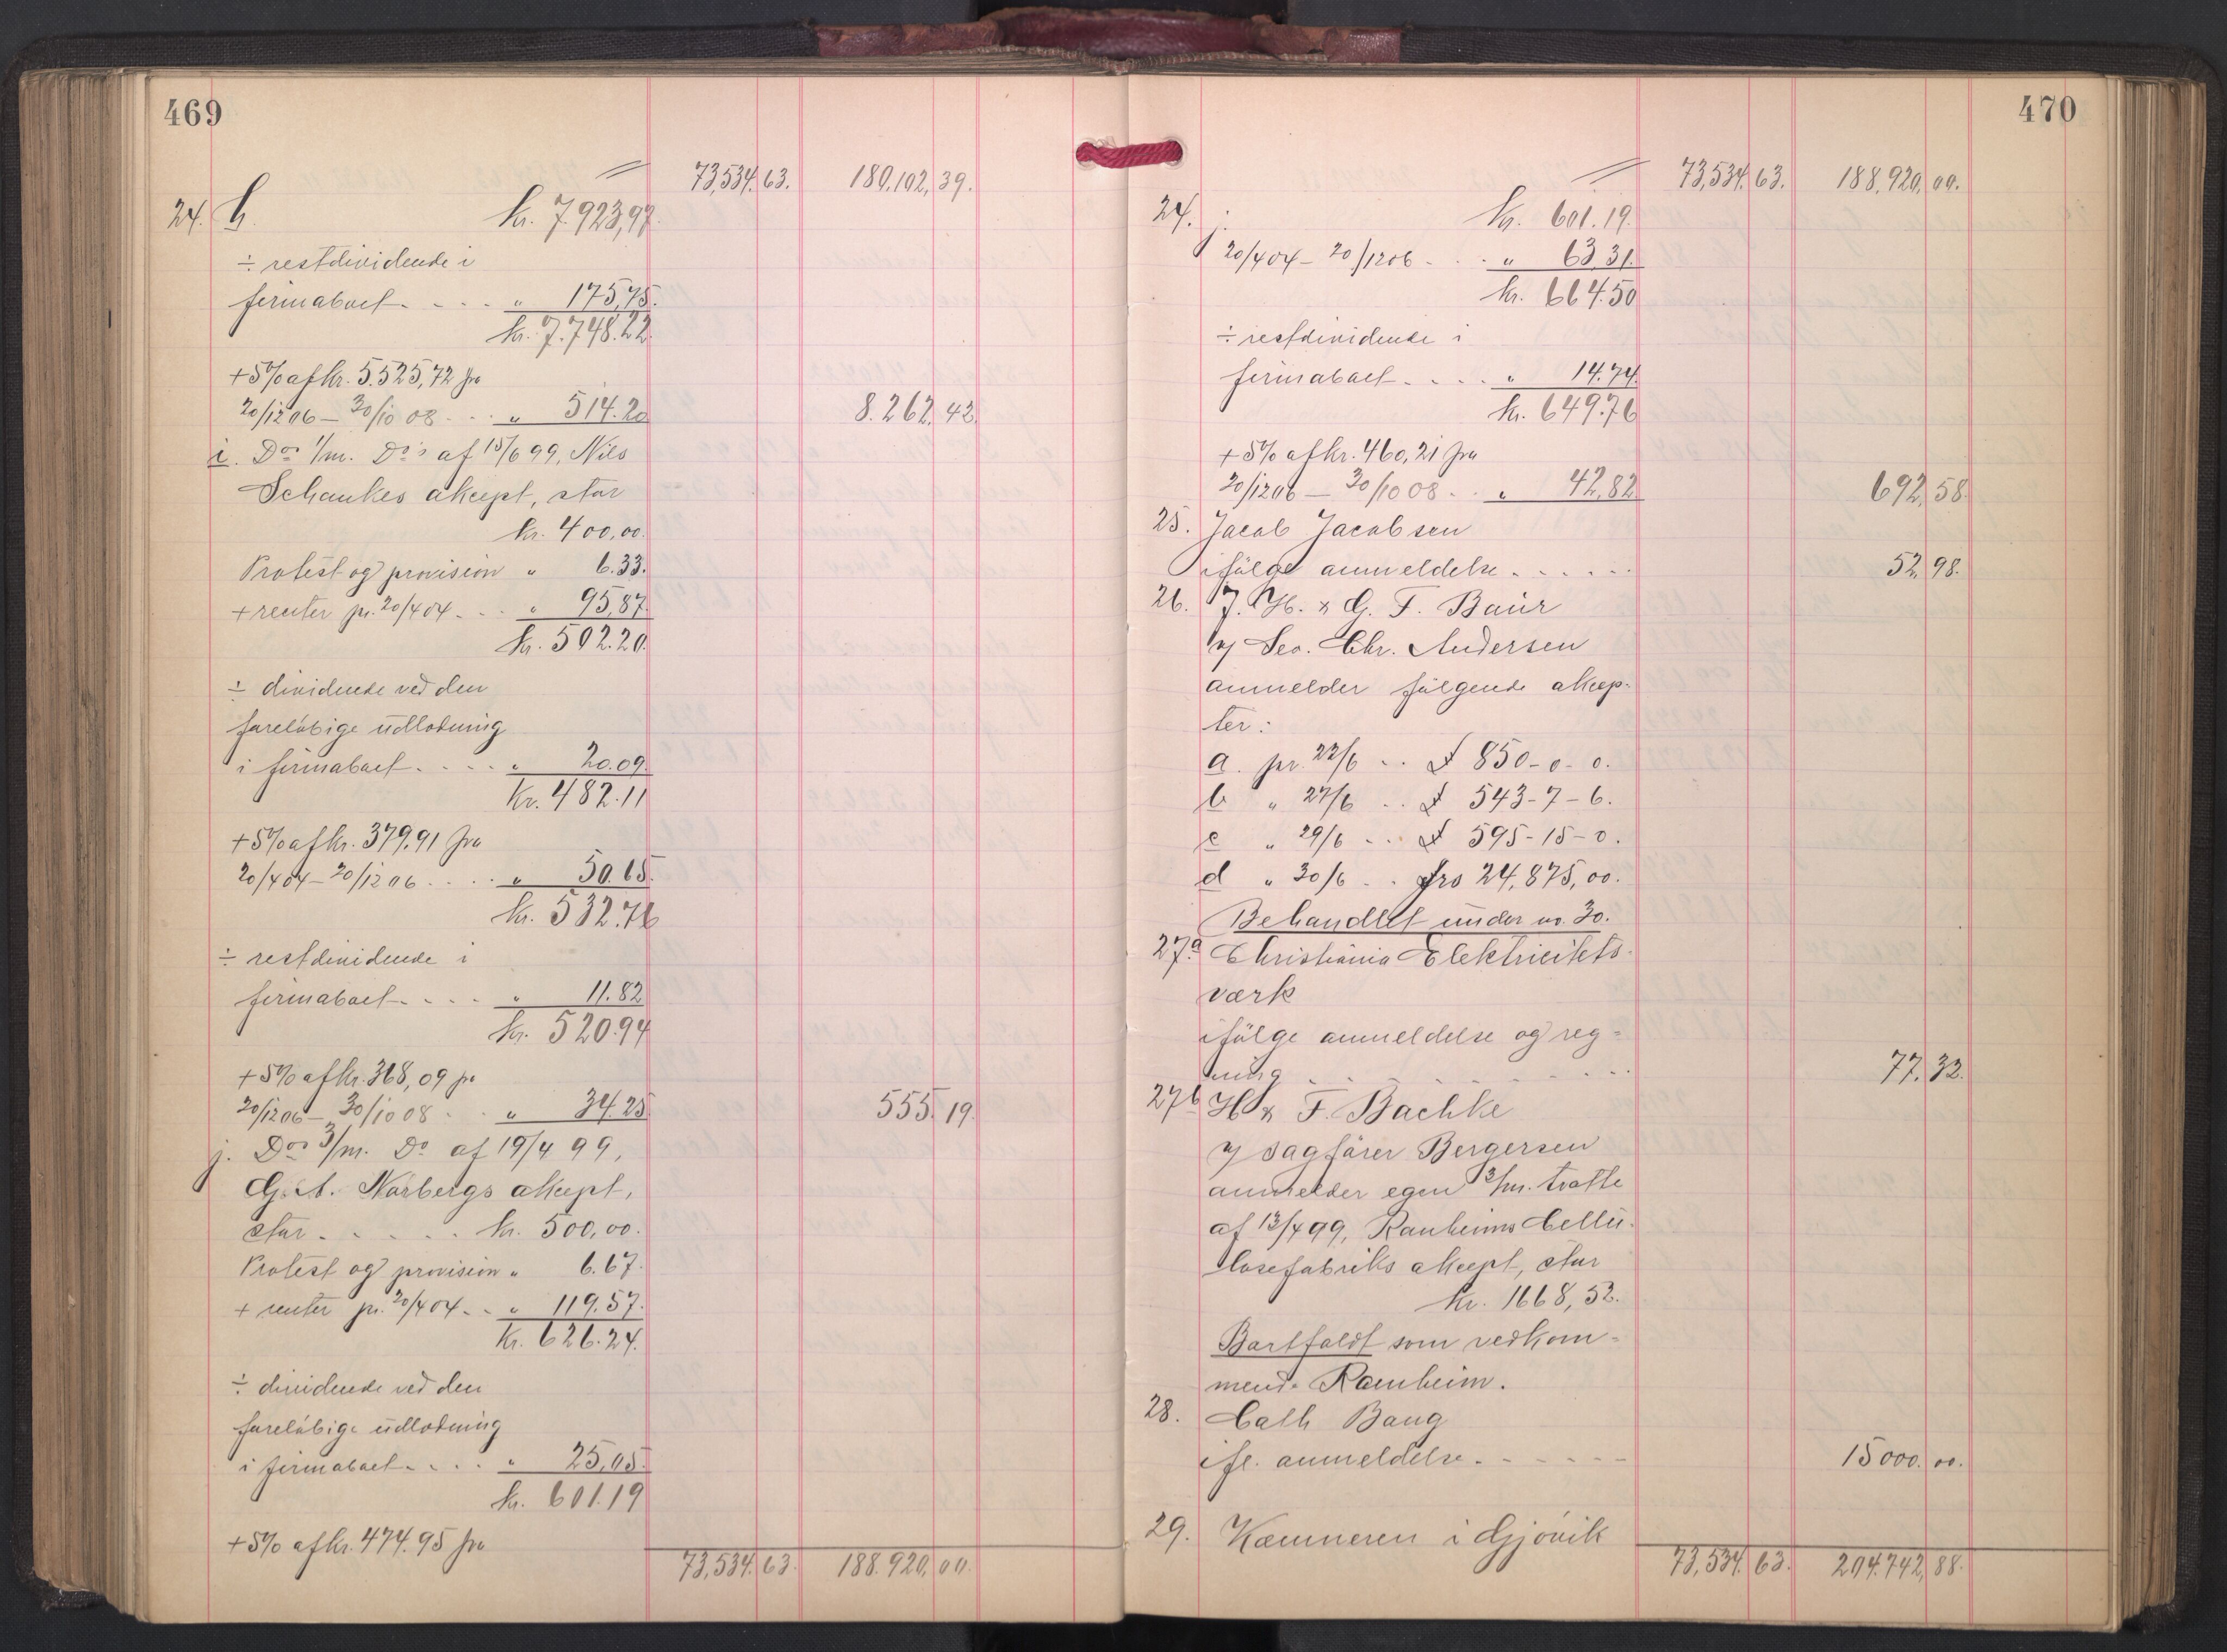 469
73,534.63. 180,102,39.
24. h. kr. 7.923,97.
÷ restdividende i
firmaboet - - - - " 175,75.
kr. 7.748.22.
+ 5% af kr. 5.525,72 fra
20/12 06 – 30/10 08 - - " 514.20 8.262,42.
i. Dos 1/m. Do's af 15/6 99, Nils
Schankes akcept, stor
kr. 400,00.
Protest og provision " 6.33.
+ renter pr. 20/4 04 - - " 95,87.
kr. 502.20.
÷ dividende ved den
foreløbige udlodning
i firmaboet - - - - " 20.09.
Kr. 482.11
+ 5% af kr. 379,91 fra
20/4 04 – 20/12 06 - - - - " 50.65.
kr. 532.76
÷ restdividende i
firmaboet - - - - " 11.82
kr. 520.94
+ 5% af kr. 368,09 fra
20/12 06 – 30/10 08 - - " 34.25 555.19.
j. Dos 3/m. Do af 19/4 99,
G. A. Norbergs akcept,
stor - - - - - kr. 500,00.
Protest og provision " 6.67.
+ renter pr. 20/4 04 - - " 119.57.
Kr. 626.24.
÷ dividende ved den
foreløbige udlodning
i firmaboet - - - - " 25,05.
kr. 601.19
+ 5% af kr. 474.95 fra
73,534.63. 188.920,00.
470
73,534.63. 188,920,00.
24. j. kr. 601.19.
20/4 04 – 20/12 06 - - - " 63,31.
kr. 664.50
÷ restdividende i
firmaboet - - - - " 14.74.
kr. 649.76
+ 5% af kr. 460,21 fra
20/12 06 – 30/10 08 - - " 42,82 692,58.
25. Jacob Jacobsen
ifølge anmeldelse - - - - - - 52,98.
26. J. H. & G. F. Baur
v/ Leo. Chr. Andersen
anmelder følgende akcep-
ter:
a. pr. 22/6 - - £ 850-0-0.
b " 27/6 - - £ 543-7-6.
c " 29/6 - - - £ 595-15-0.
d " 30/6 - - frs 24,875,00.
Behandlet under no. 30.
27a Christiania Elektricitets-
værk
ifølge anmeldelse og reg-
ning - - - - - - - - - 77.32.
27b H & F. Bachke
v/ sagfører Bergersen
anmelder egen 3/m. tratte
af 13/4 99, Ranheims Cellu-
losefabriks akcept, stor
kr. 1668,52.
Bortfaldt som vedkom-
mende Ranheim.
28. Cath Bang
ifl. anmeldelse - - - - - - 15000.00.
29. Kæmneren i Gjøvik
73,534.63. 204.742,88.